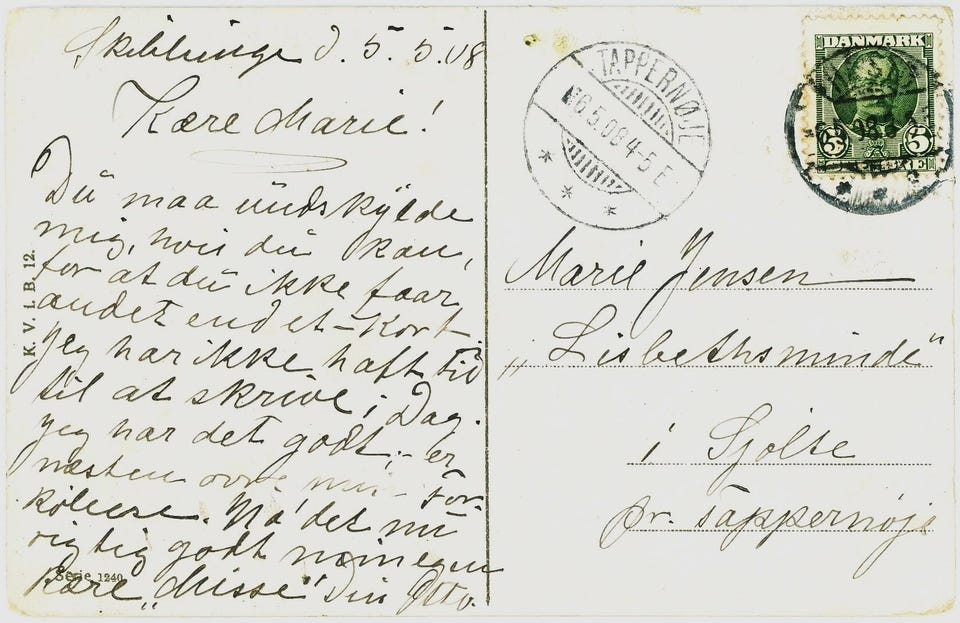 Skibbinge d. 5.5.08
Kære Marie!
Du maa undskylde
mig, hvis du kan,
for at du ikke faar
andet end et Kort
jeg har ikke haft tid
til at skrive i Dag.
jeg har det godt, er
næsten ovre min For-
kølelse. Ha' det nu
rigtig godt min egen
kære „Misse" Din Otto.
K. V. i. B. 12.
Serie 1240
TAPPERNØJE
6.5.08 4-5 E
DANMARK
5 5
Marie Jensen
„Lisbethsminde"
i Sjolte
pr. Tappernøje